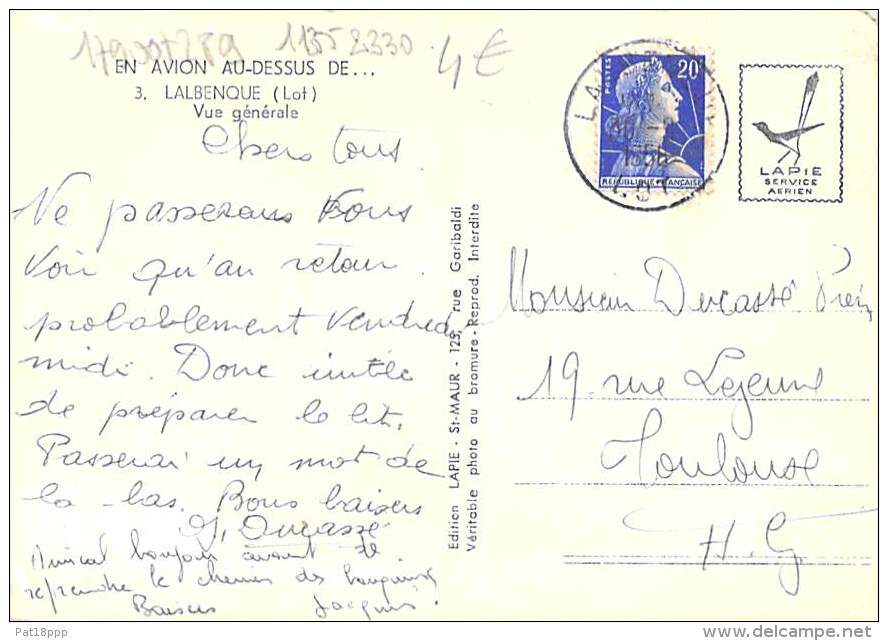 17900+289 11352330 4€
EN AVION AU-DESSUS DE...
3. LALBENQUE (Lot)
Vue générale
Chers tous.
Ne passerons vous
voir qu'au retour.
probablement vendredi
midi. Donc inutile
de préparer le lit.
Passerai un mot de
la-bas. Bons baisers
G. Ducassé
Amical bonjour avant de
reprendre le chemin des
Baisers Jacques.
Edition LAPIE - St-MAUR - 125, rue Garibaldi
Véritable photo au bromure - Reprod. Interdite
POSTES 20F
REPUBLIQUE FRANÇAISE
LOT
LAPIE
SERVICE
AERIEN
Monsieur Ducassé
19 rue Lejeune
Toulouse
H.G.
Pat18ppp